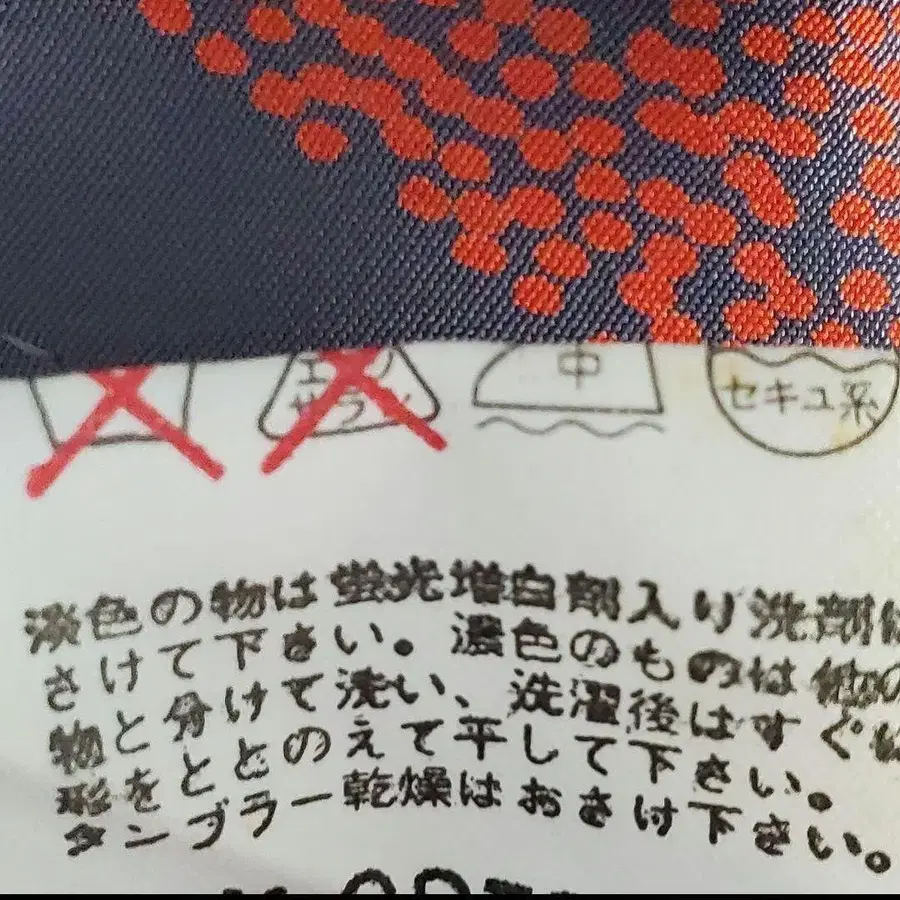 中
セキユ系
淡色の物は蛍光増白剤入り洗剤は
さけて下さい。濃色のものは他の
物と分けて洗い、洗濯後はすぐ
形をととのえて平して下さい。
タンブラー乾燥はおさけ下さい。